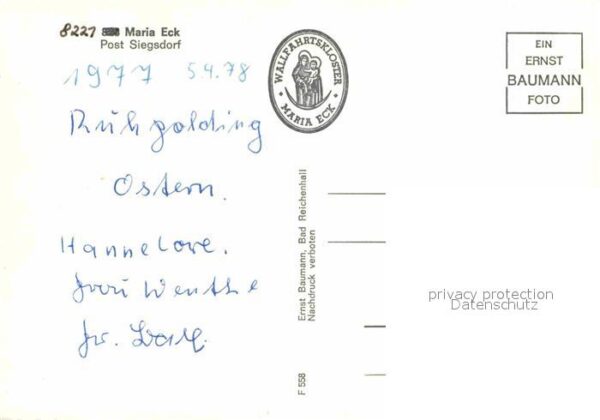 8227 Maria Eck
Post Siegsdorf
1977 5.4.78
Ruhpolding
Ostern.
Hannelore.
Frau Wenthe
Fr.
WALLFAHRTSKLOSTER
MARIA ECK
EIN
ERNST
BAUMANN
FOTO
Ernst Baumann, Bad Reichenhall
Nachdruck verboten
F 558
privacy protection
Datenschutz